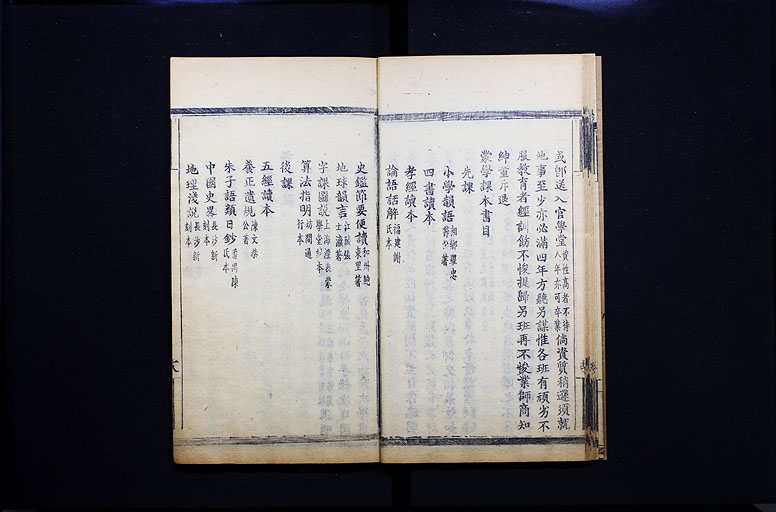 或卽送入官學堂資性高者不待八年亦可卒業倘資質稍遜須就
地事至少亦必滿四年方聽另謀惟各班有頑劣不
服教育者經訓飭不悛提歸另班再不悛業師商知
紳董斥退
蒙學課本書目
先課
小學韻語湘鄉羅忠節公著
四書讀本
孝經讀本
論語話解福建謝氏本
史鑑節要便讀和州鮑東里著
地球韻言江陵張士瀛著
字課圖說上海澄衷蒙學堂本
算法指明坊間通行本
後課
五經讀本
養正遺規陳文恭公著
朱子語類日鈔番禺陳氏本
中國史畧長沙新刻本
地理淺說長沙新刻本